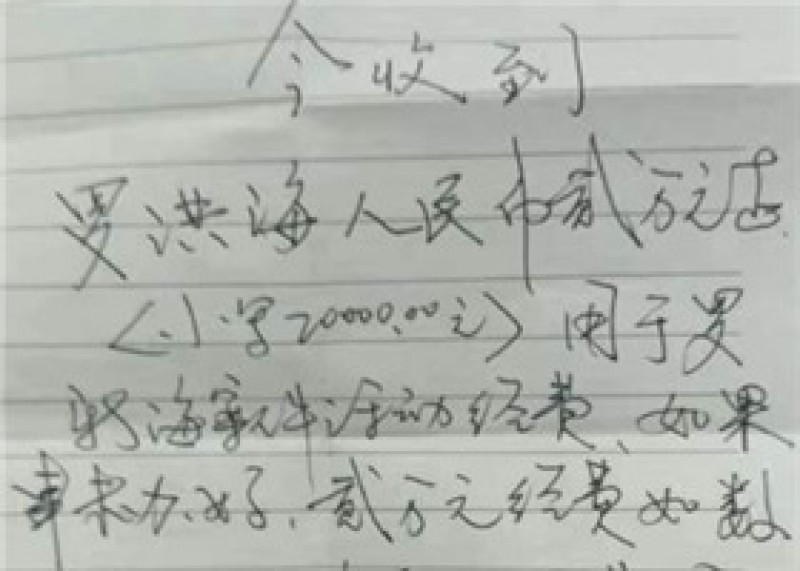 今收到
罗洪海人民币贰万元正
(小写20000.00元)用于罗
海案件活动经费、如果
事未办好、贰万元经费如数